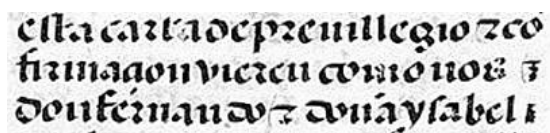 esta carta de preuillegio ⁊ co
firmaçion vieren como nos
don fernando ⁊ doña ysabel